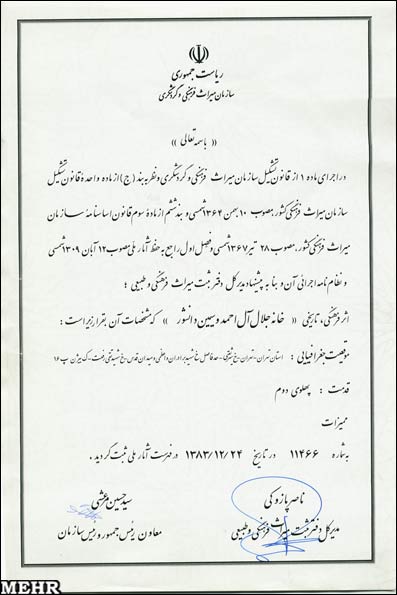 ریاست جمهوری
سازمان میراث فرهنگی و گردشگری
« باسمه تعالی »
در اجرای ماده ۱ از قانون تشکیل سازمان میراث فرهنگی و گردشگری و نظر به بند ( ج ) از ماده واحدۀ قانون تشکیل
سازمان میراث فرهنگی کشور مصوب ۱۰ بهمن ۱۳۶۴ شمسی و بند ششم از مادۀ سوم قانون اساسنامۀ سازمان
میراث فرهنگی کشور، مصوب ۲۸ تیر ۱۳۶۷ شمسی و فصل اول راجع به حفظ آثار ملی مصوب ۱۲ آبان ۱۳۰۹ شمسی
و نظام نامه اجرائی آن و بنا به پیشنهاد مدیر کل دفتر ثبت میراث فرهنگی و طبیعی :
اثر فرهنگی ، تاریخی « خانه جلال آل احمد و سیمین دانشور » که مشخصات آن بقرار زیر است :
موقعیت جغرافیایی : استان تهران - تهران - خ شریعتی - حد فاصل خ شهید برادران واعظی و میدان قدس - خ شهید رفعت - ک بیژن - پ ۱۶
قدمت : پهلوی دوم
ممیزات
به شماره ۱۱۴۶۶ در تاریخ ۱۳۸۳/۱۲/۲۴ در فهرست آثار ملی ثبت گردید .
ناصر پازوکی
مدیر کل دفتر ثبت میراث فرهنگی و طبیعی
سید حسین مرعشی
معاون رئیس جمهور و رئیس سازمان
MEHR